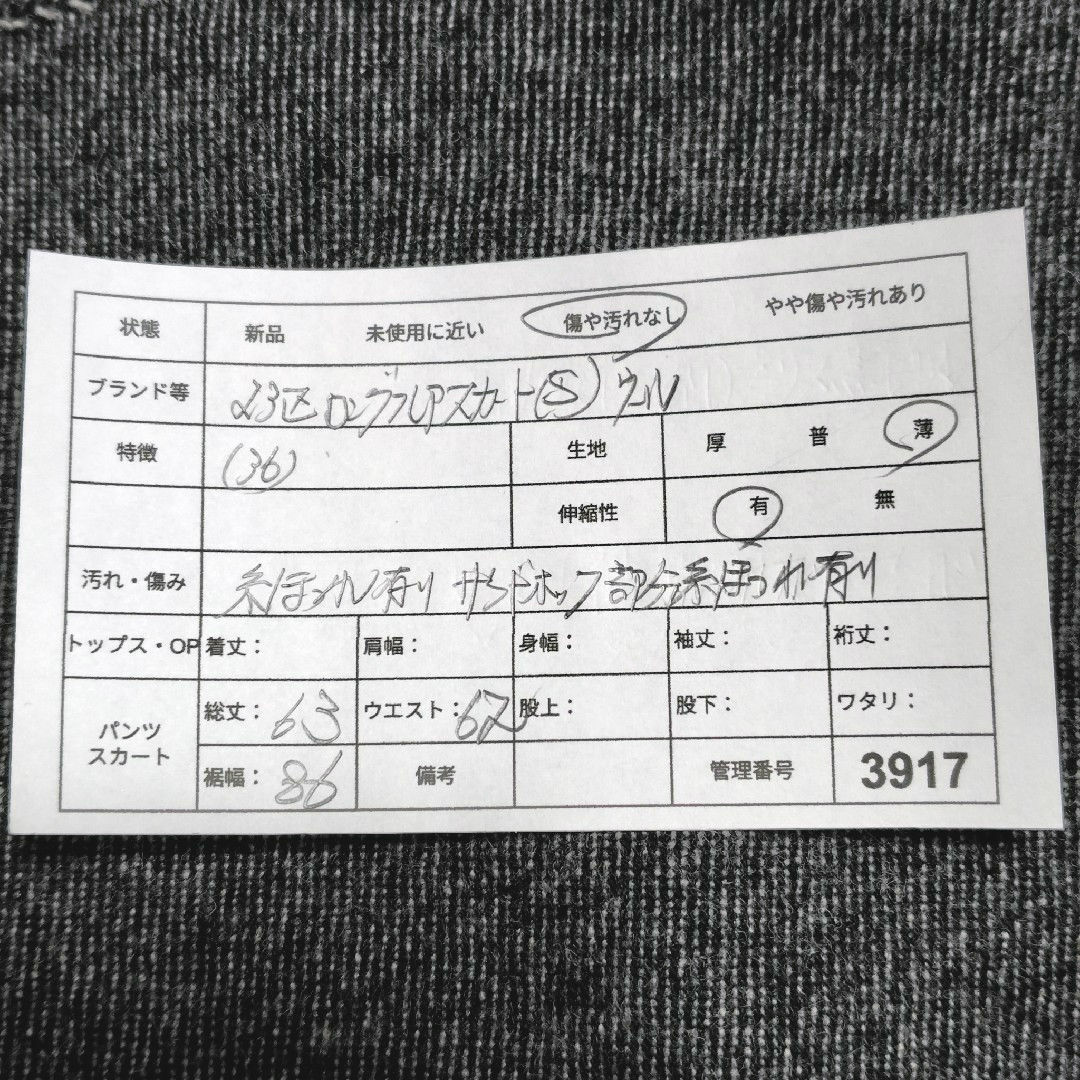 状態 新品 未使用に近い 傷や汚れなし やや傷や汚れあり
ブランド等 23区 ロングフレアスカート(S) ウール
特徴 (36) 生地 厚 普 薄
伸縮性 有 無
汚れ・傷み 糸ほつれ有り サイドホック部分糸ほつれ有り
トップス・OP 着丈: 肩幅: 身幅: 袖丈: 裄丈:
パンツ スカート 総丈: 63 ウエスト: 62 股上: 股下: ワタリ:
裾幅: 86 備考 管理番号 3917